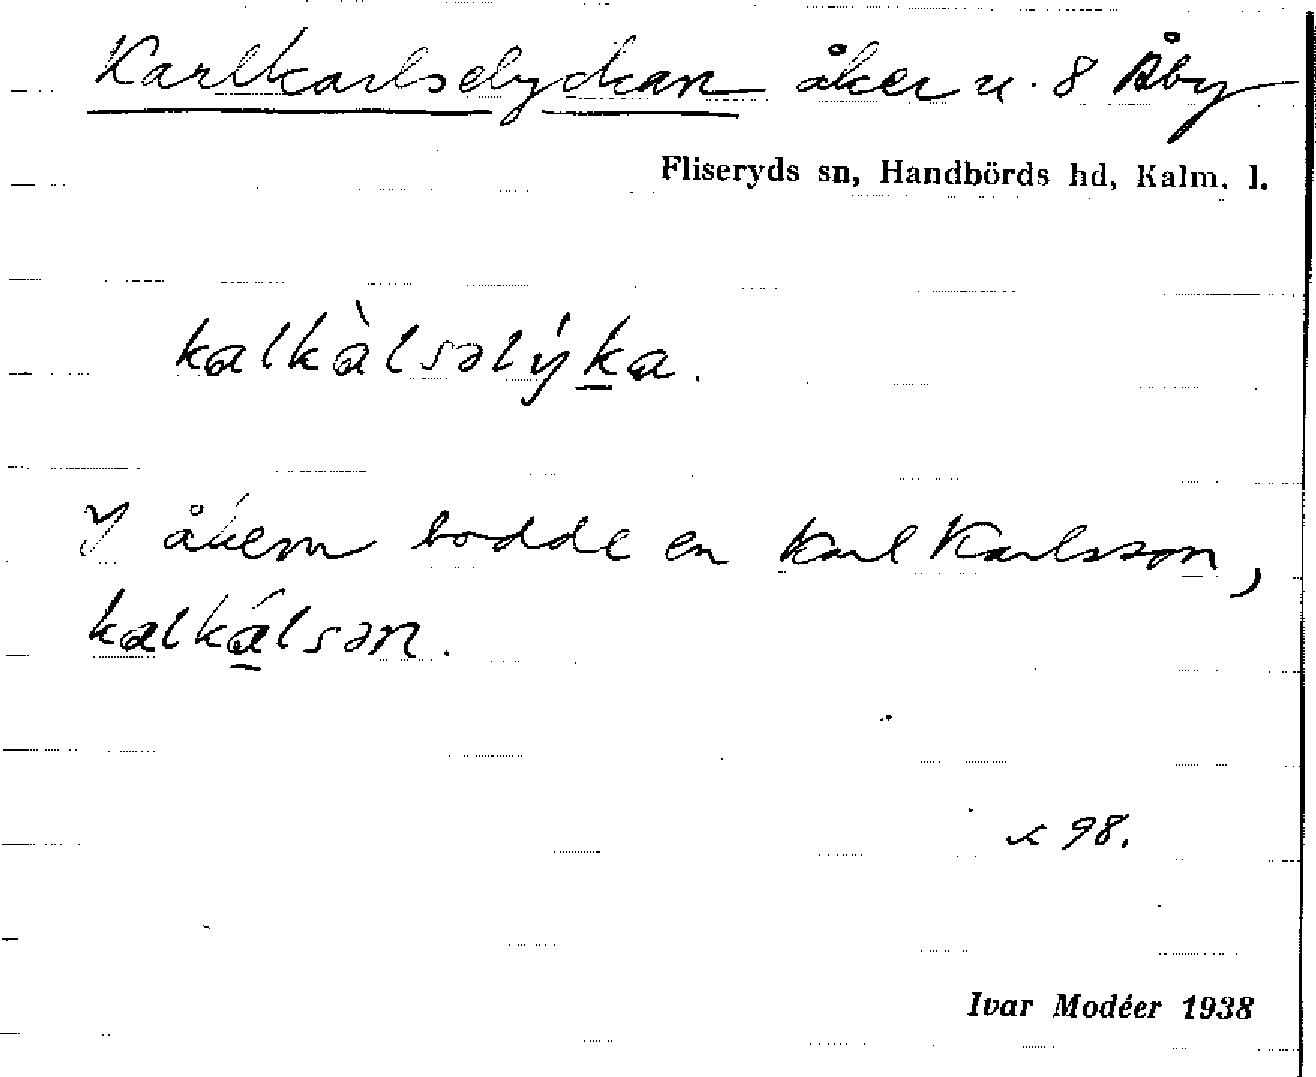 Karlkarlselyckan åker u. 8 Åby
Fliseryds sn, Handbörds hd, Kalm. l.
kalkàlsəlýka.
I åkern bodde en Karl Karlsson,
kalkálsən.
98.
Ivar Modéer 1938